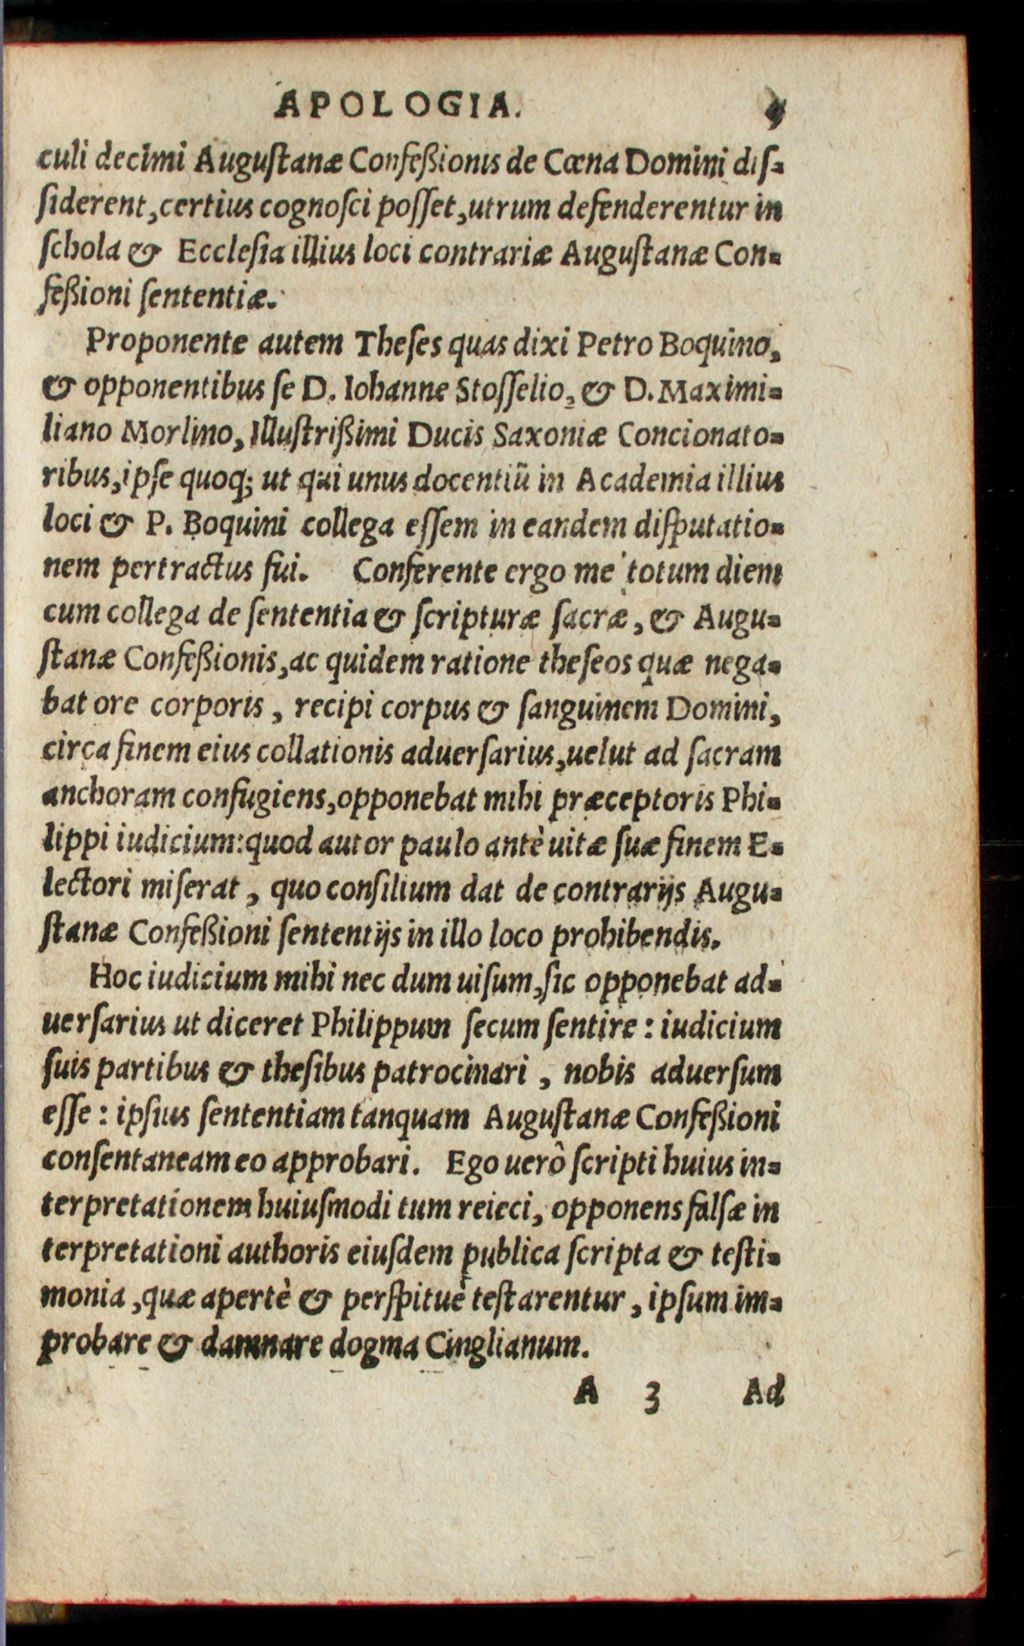 APOLOGIA.
culi decimi Auguſtanæ Confeßionis de Cœna Domini diſ-
ſiderent, certius cognoſci poſſet, utrum defenderentur in
ſchola & Eccleſia illius loci contrariæ Auguſtanæ Con-
feßioni ſententiæ.
Proponente autem Theſes quas dixi Petro Boquino,
& opponentibus ſe D. Iohanne Stoſſelio, & D. Maximi-
liano Morlino, Illuſtrißimi Ducis Saxoniæ Concionato-
ribus, ipſe quoq; ut qui unus docentiũ in Academia illius
loci & P. Boquini collega eſſem in eandem diſputatio-
nem pertractus fui. Conferente ergo me totum diem
cum collega de ſententia & ſcripturæ ſacræ, & Augu-
ſtanæ Confeßionis, ac quidem ratione theſeos quæ nega-
bat ore corporis, recipi corpus & ſanguinem Domini,
circa finem eius collationis aduerſarius, uelut ad ſacram
anchoram confugiens, opponebat mihi præceptoris Phi-
lippi iudicium: quod autor paulo antè uitæ ſuæ finem E-
lectori miſerat, quo conſilium dat de contrarijs Augu-
ſtanæ Confeßioni ſententijs in illo loco prohibendis.
Hoc iudicium mihi nec dum uiſum, ſic opponebat ad-
uerſarius ut diceret Philippum ſecum ſentire: iudicium
ſuis partibus & theſibus patrocinari, nobis aduerſum
eſſe: ipſius ſententiam tanquam Auguſtanæ Confeßioni
conſentaneam eo approbari. Ego uerô ſcripti huius in-
terpretationem huiuſmodi tum reieci, opponens falſæ in
terpretationi authoris eiuſdem publica ſcripta & teſti-
monia, quæ apertè & perſpituè teſtarentur, ipſum im-
probare & damnare dogma Cinglianum.
A 3 Ad